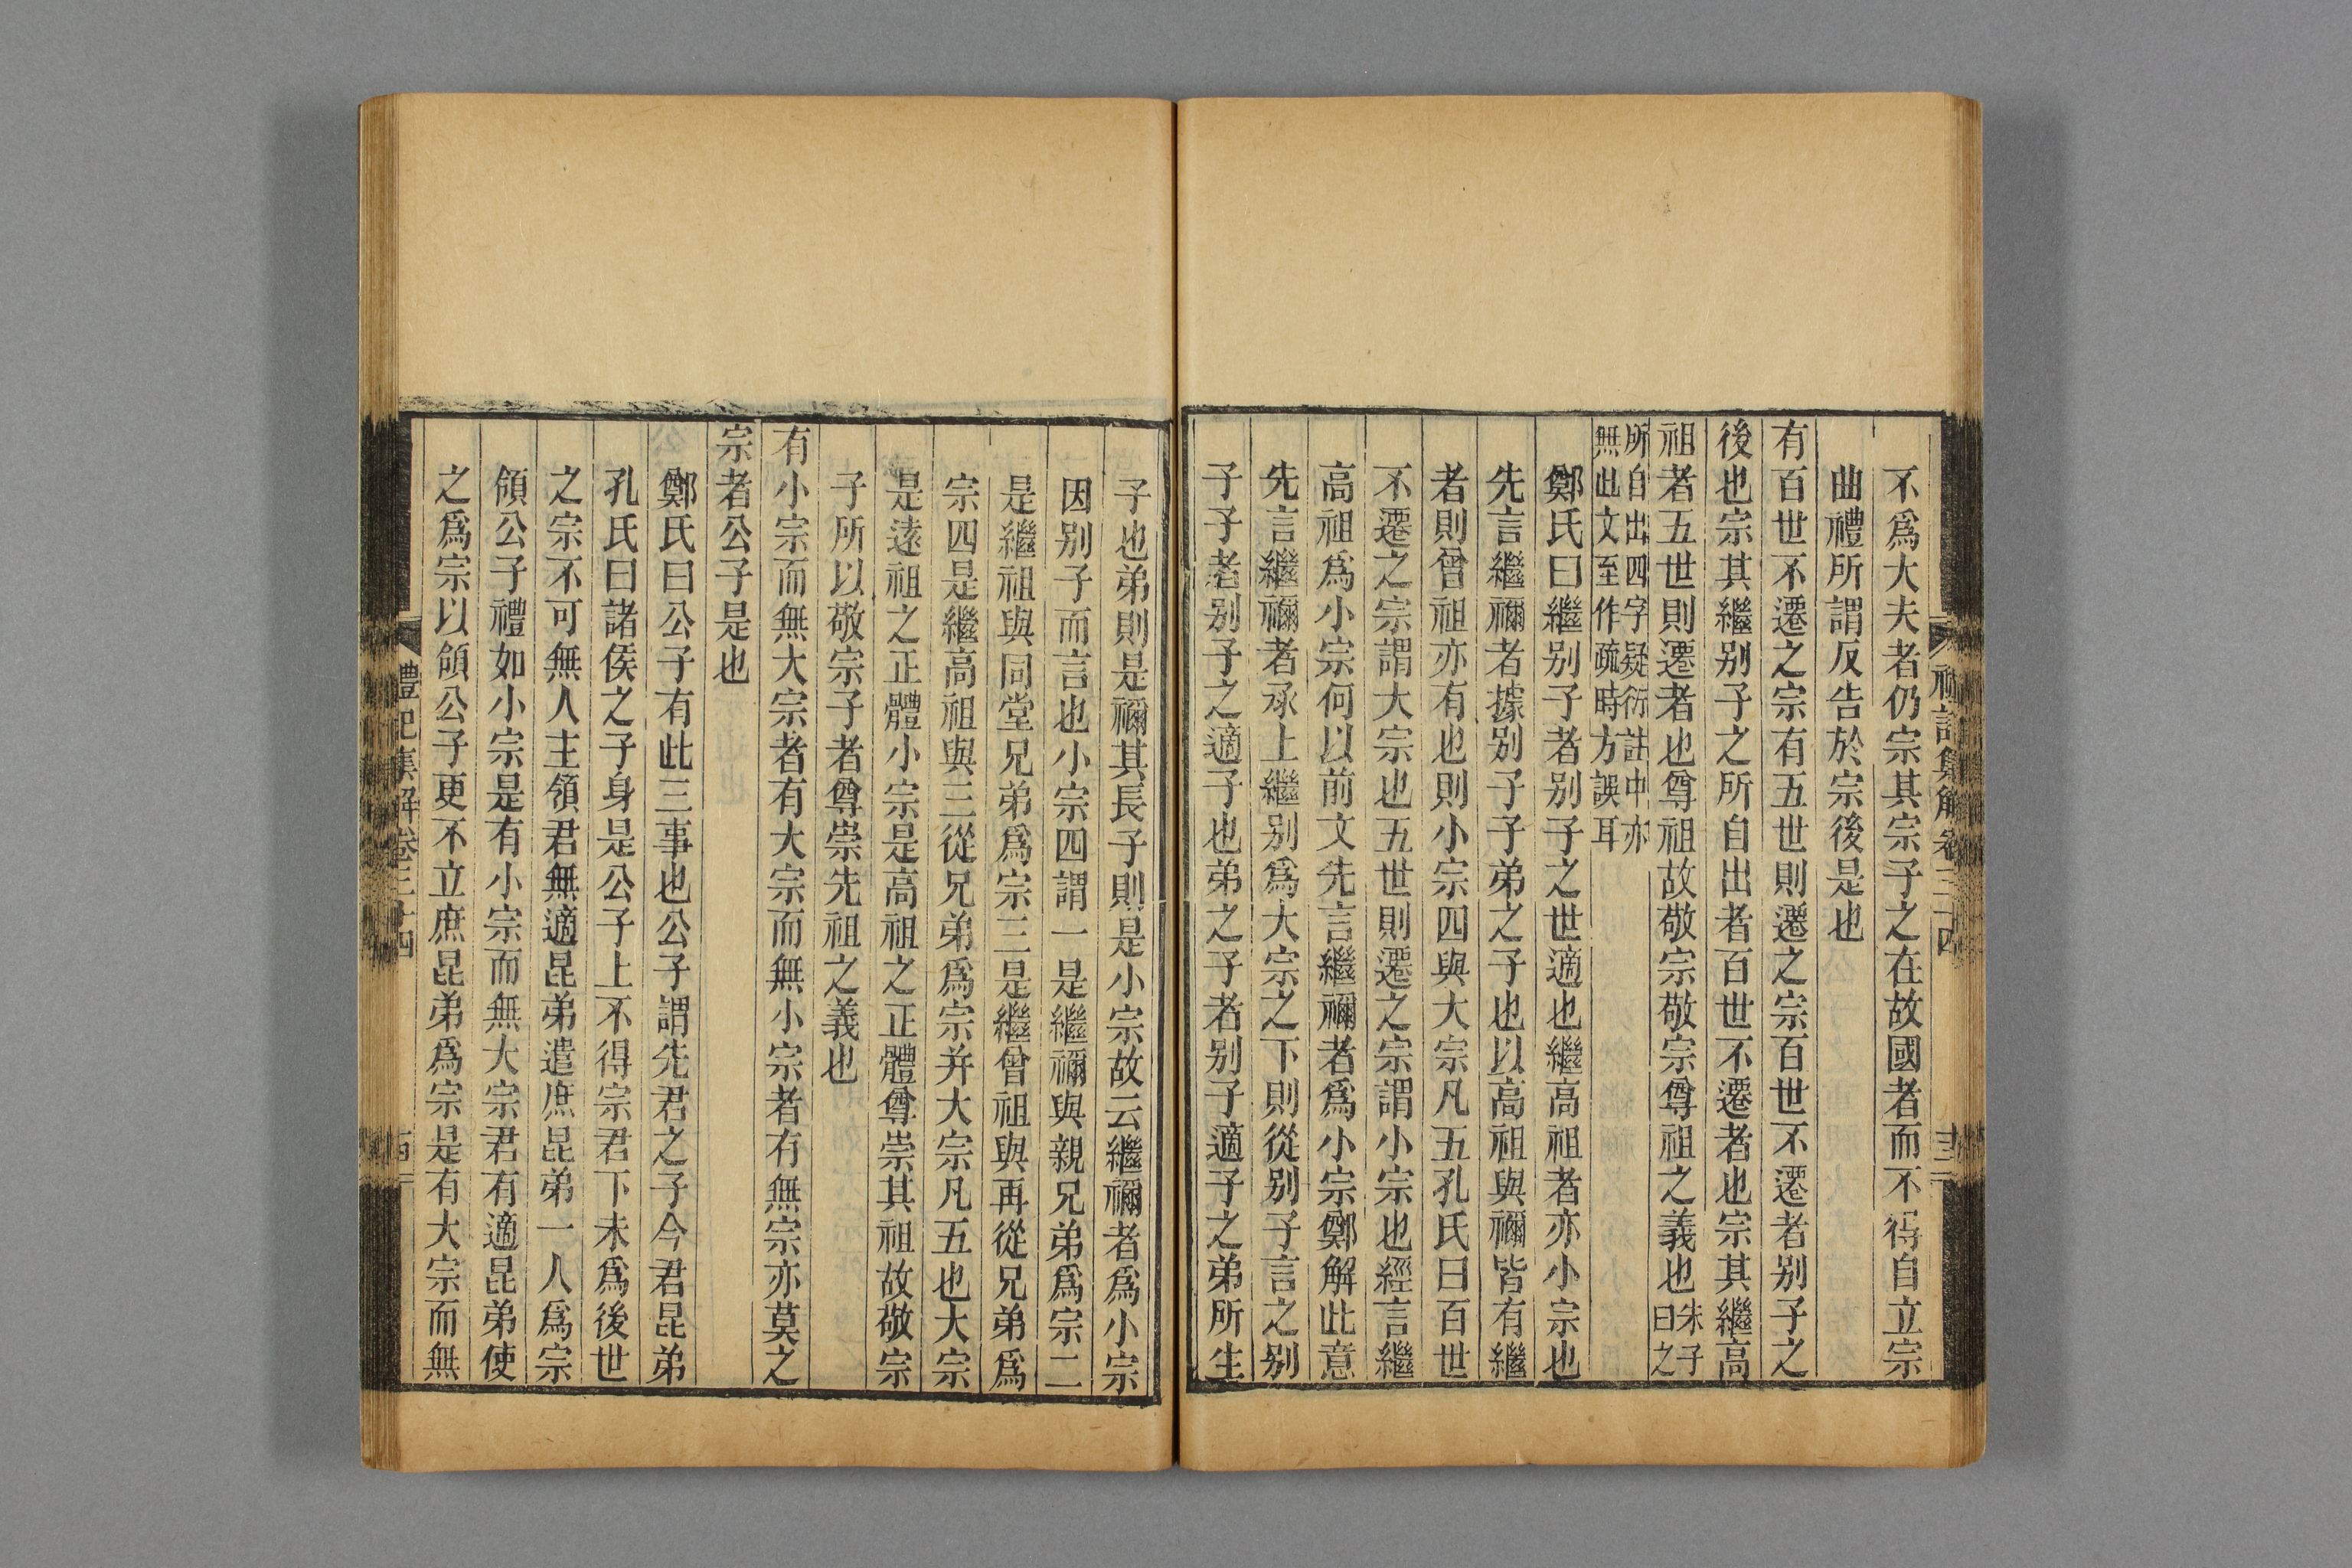 不爲大夫者仍宗其宗子之在故國者而不得自立宗
曲禮所謂反告於宗後是也
有百世不遷之宗有五世則遷之宗百世不遷者别子之
後也宗其繼别子之所自出者百世不遷者也宗其繼高
祖者五世則遷者也尊祖故敬宗敬宗尊祖之義也朱子曰之
所自出四字疑衍註中亦
無此文至作疏時方誤耳
鄭氏曰繼别子者别子之世適也繼高祖者亦小宗也
先言繼禰者據别子子弟之子也以高祖與禰皆有繼
者則曾祖亦有也則小宗四與大宗凡五孔氏曰百世
不遷之宗謂大宗也五世則遷之宗謂小宗也經言繼
高祖爲小宗何以前文先言繼禰者爲小宗鄭解此意
先言繼禰者承上繼别爲大宗之下則從别子言之别
子子者别子之適子也弟之子者别子適子之弟所生
禮記集解卷三十四
子也弟則是禰其長子則是小宗故云繼禰者爲小宗
因别子而言也小宗四謂一是繼禰與親兄弟爲宗二
是繼祖與同堂兄弟爲宗三是繼曾祖與再從兄弟爲
宗四是繼高祖與三從兄弟爲宗并大宗凡五也大宗
是遠祖之正體小宗是高祖之正體尊崇其祖故敬宗
子所以敬宗子者尊崇先祖之義也
有小宗而無大宗者有大宗而無小宗者有無宗亦莫之
宗者公子是也
鄭氏曰公子有此三事也公子謂先君之子今君昆弟
孔氏曰諸侯之子身是公子上不得宗君下未爲後世
之宗不可無人主領君無適昆弟遣庶昆弟一人爲宗
領公子禮如小宗是有小宗而無大宗君有適昆弟使
之爲宗以領公子更不立庶昆弟爲宗是有大宗而無
禮記集解卷三十四